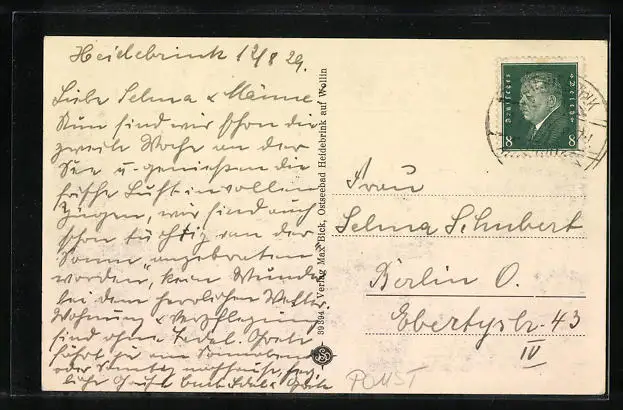 Heidebrink 12/8 29.
Liebe Selma & Männe
Nun sind wir schon die
zweite Woche an der
See u. genießen die
frische Luft in vollen
Zügen, wir sind auch
schon tüchtig von der
Sonne angebraten
worden, kein Wunder
bei dem herrlichen Wetter
Wohnung & Verpflegung
sind ohne Tadel.
fährt zu am Sonnabend
oder Sonntag nachhause,
liche
39 394 Verlag Max Bick, Ostseebad Heidebrink auf Wollin
Deutsches Reich
8 8
Frau
Selma Schubert
Berlin O.
Ebertystr. 43
IV